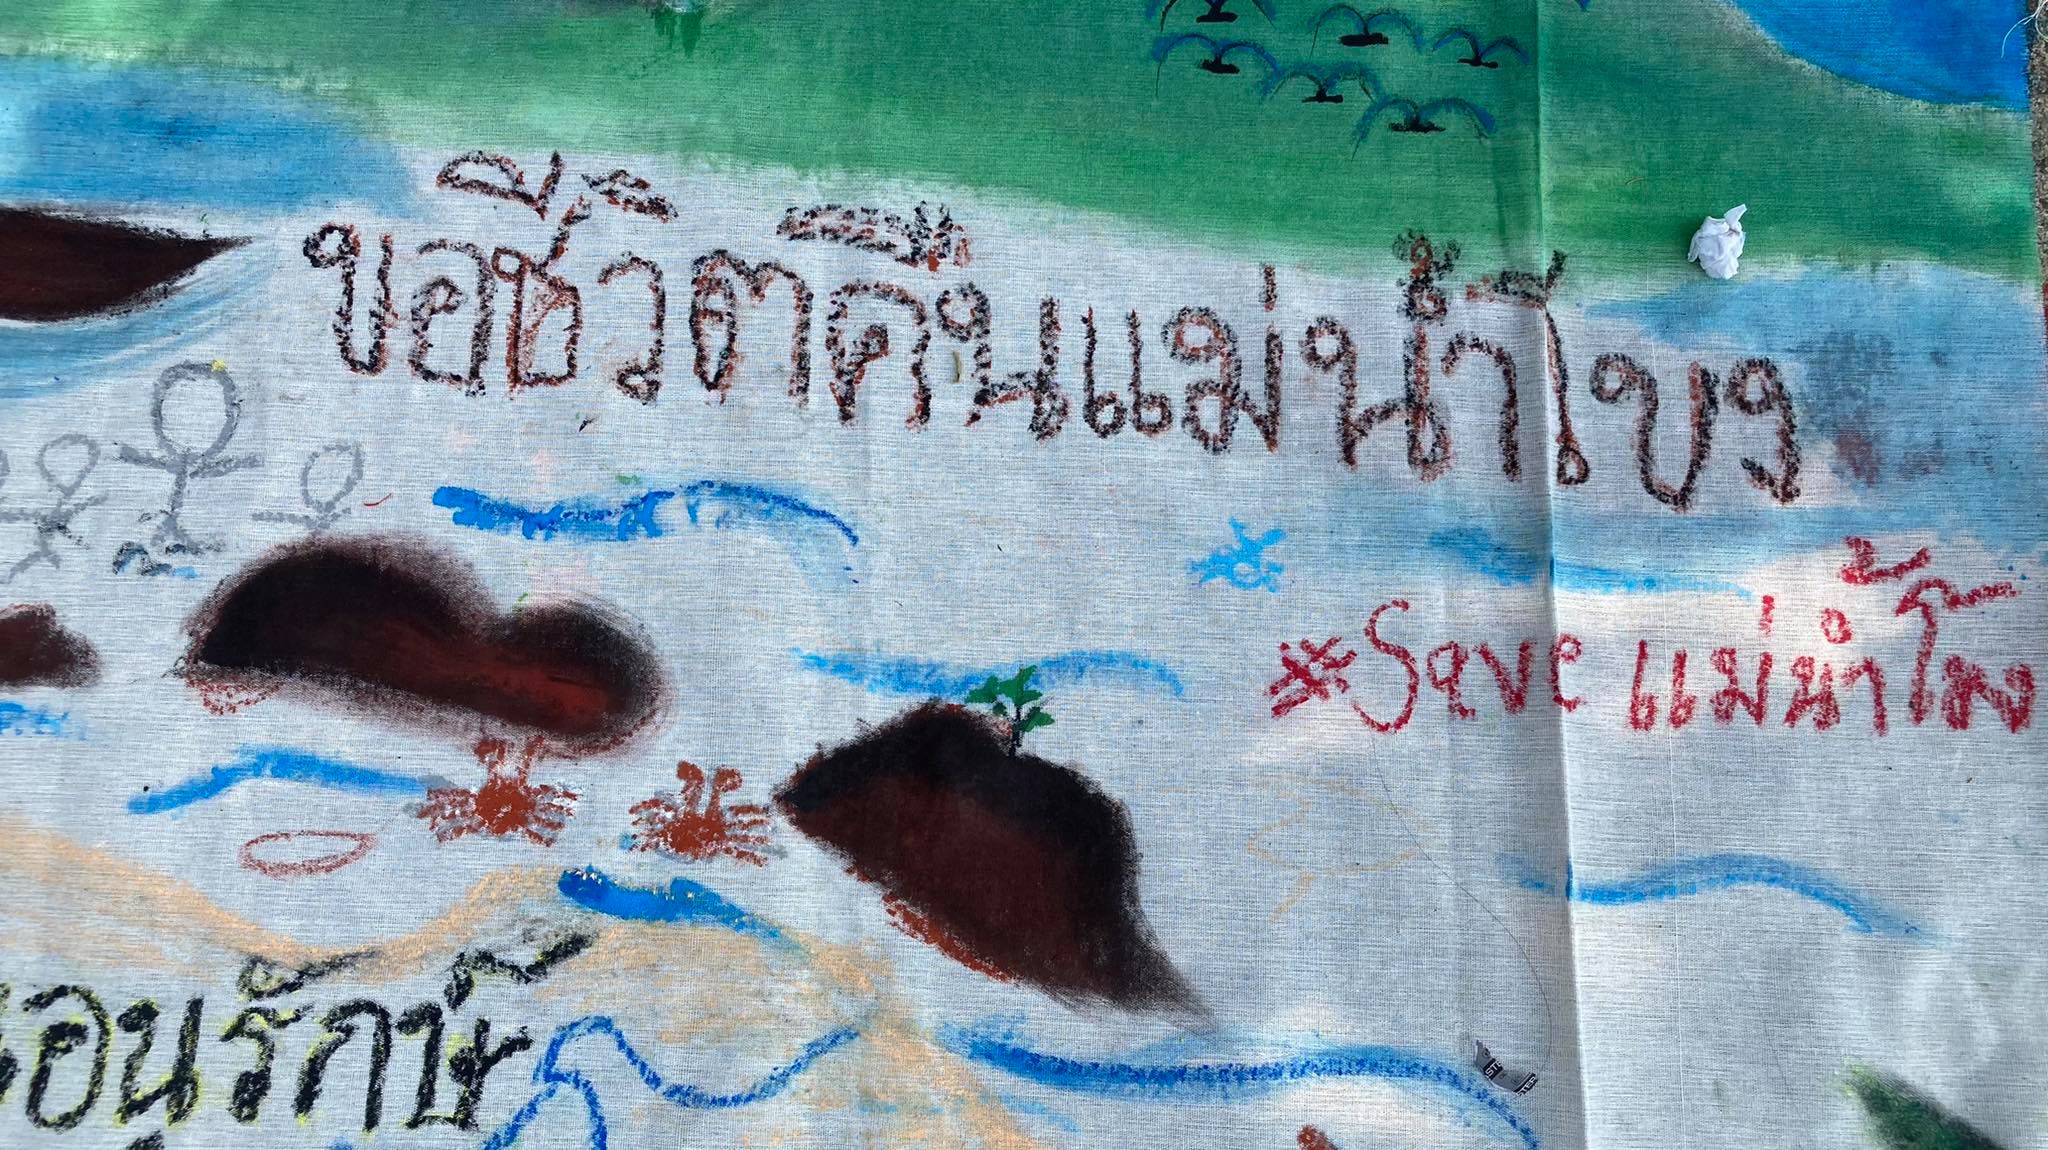 ขอชีวิตคืนแม่น้ำโขง
*Save แม่น้ำโขง
อนุรักษ์